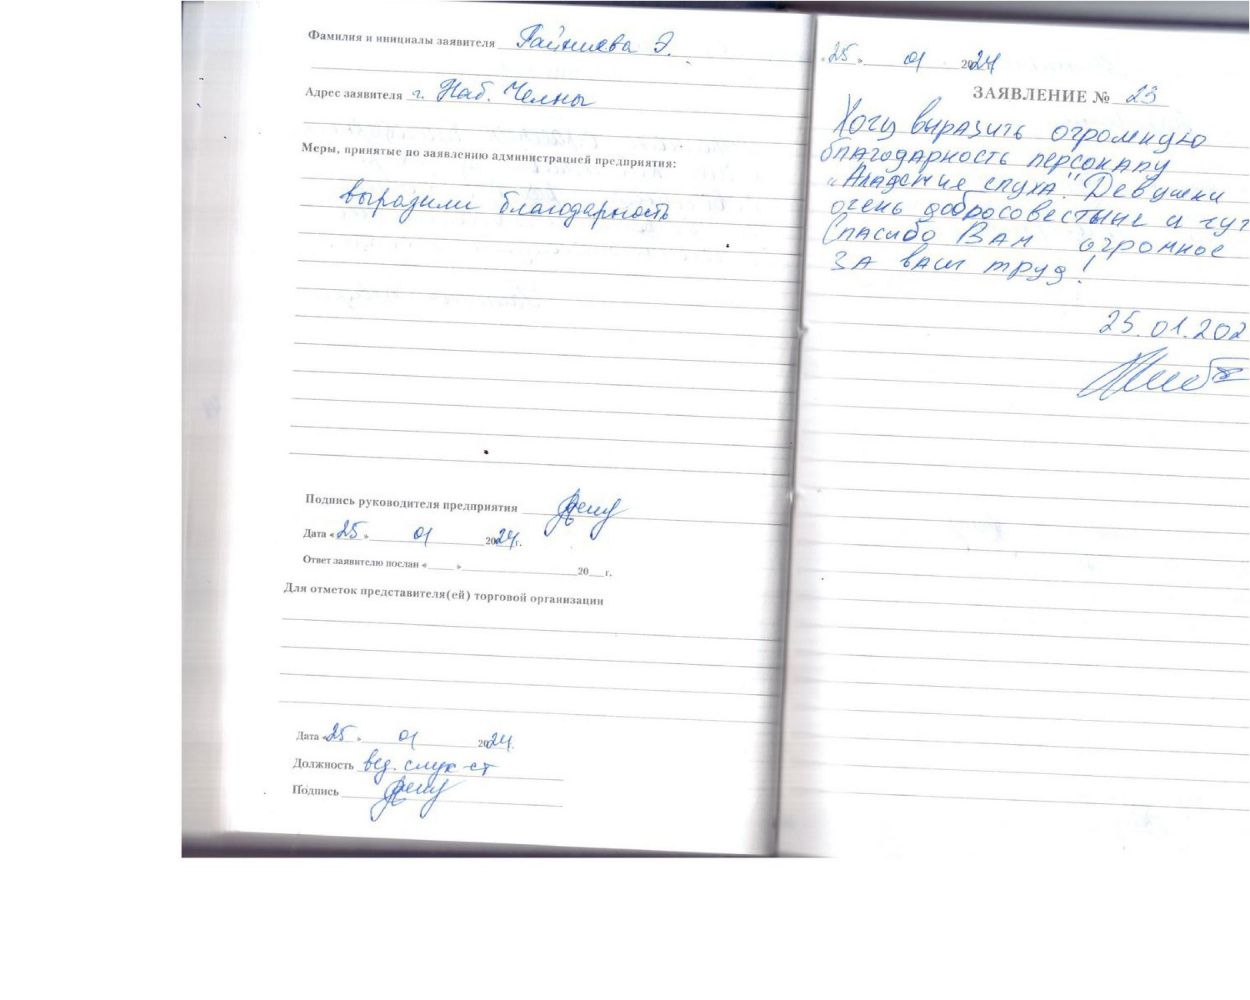 Фамилия и инициалы заявителя Гайниева Э.
Адрес заявителя г. Наб. Челны
Меры, принятые по заявлению администрацией предприятия:
выразили благодарность
Подпись руководителя предприятия
Дата «25» 01 2024г.
Ответ заявителю послан « » 20 г.
Для отметок представителя(ей) торговой организации
Дата «25» 01 2024г.
Должность вед. слух-ст
Подпись
«25» 01 2024
ЗАЯВЛЕНИЕ № 23
Хочу выразить огромную
благодарность персоналу
"Академие слуха." Девушки
очень добросовестные и чут
Спасибо Вам огромное
за ваш труд!
25.01.202